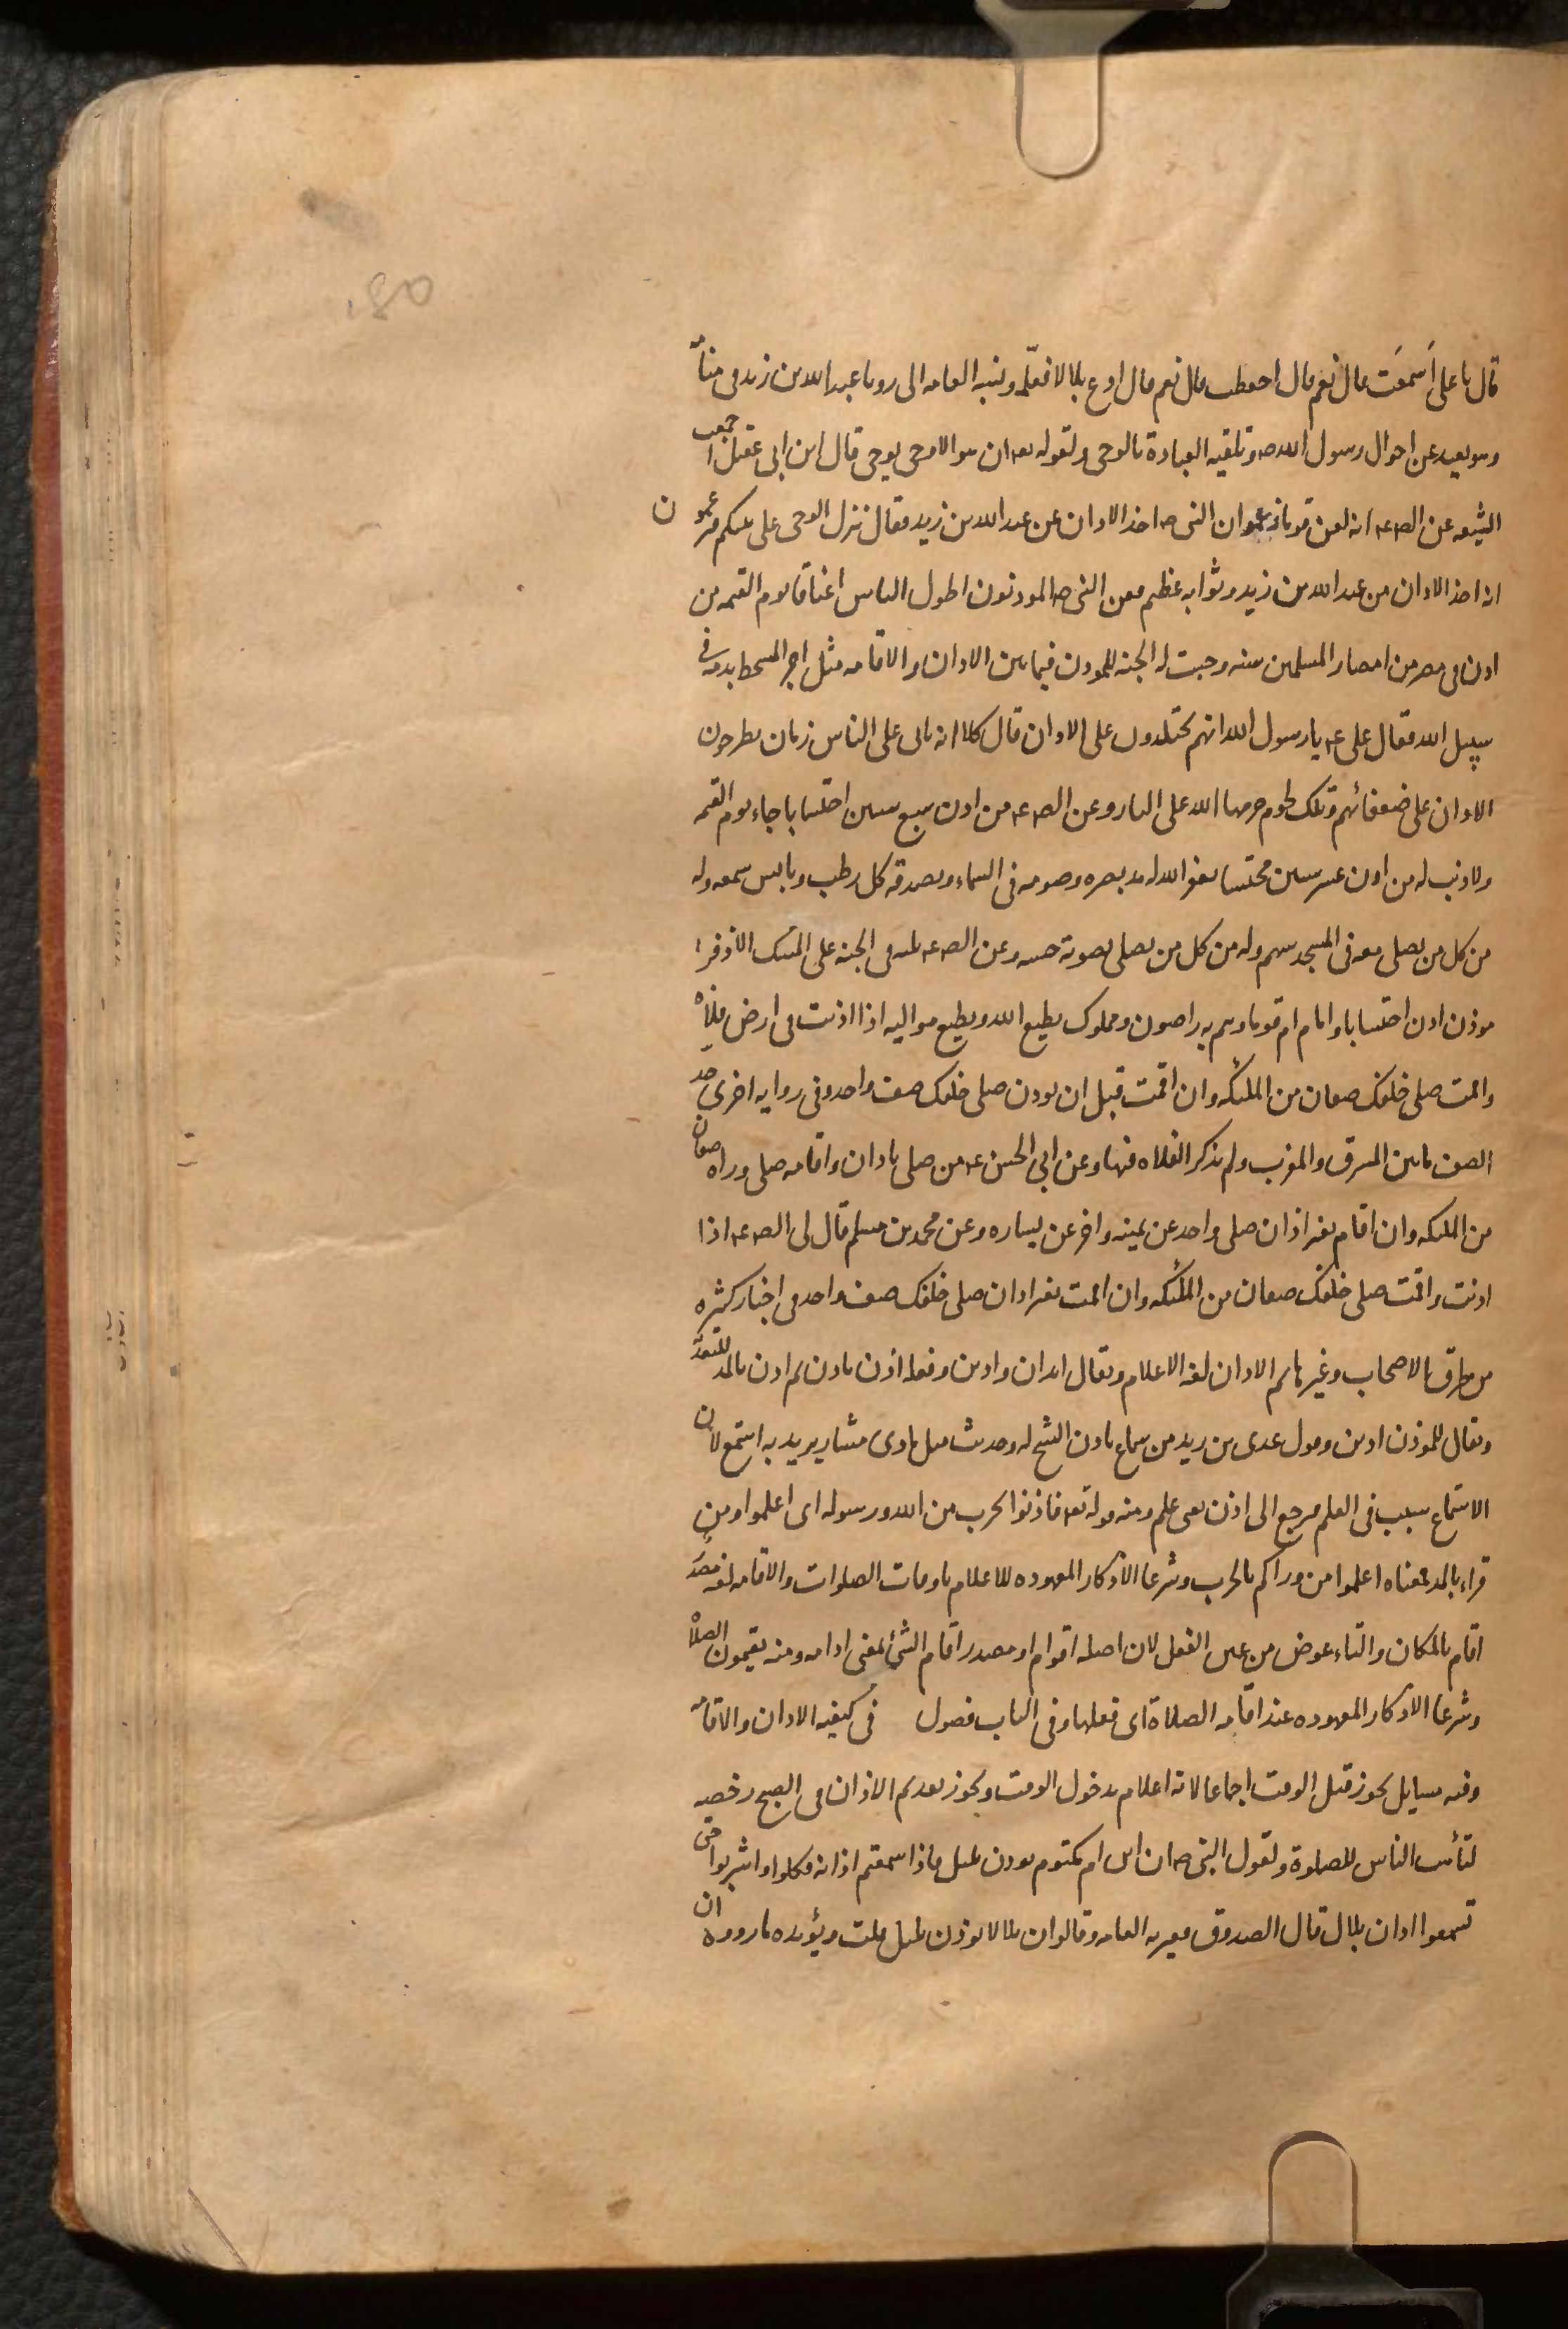 قال يا على أسَمعَت قال نعم قال احفظت قال نعم قال ادع بلالا فعلّمه ونسبه العامه الى رويا عبد الله بن زيد فى منامه
وهو بعيد عن احوال رسول الله صه وتلقيه العبادة بالوحى ولقوله تعه ان هو الا وحى يوحى قال ابن ابى عقيل اجمعت
الشيعه عن الصه عه انه لعن قوما زعموا ان النبى صه اخذ الاذان عن عبد الله بن زيد فقال نزل الوحى على نبيكم فتزعمون
انه اخذ الاذان من عبد الله بن زيد وثوابه عظيم فعن النبى صه الموذنون اطول الناس اعناقا يوم القيمه من
اذن فى مصر من امصار المسلمين سنه وجبت له الجنه للموذن فيما بين الاذان والاقامه مثل اجر المتشحط بدمه فى
سبيل الله فقال على عه يا رسول الله انهم يجتلدون على الاذان قال كلا انه ياتى على الناس زمان يطرحون
الاذان على ضعفائهم وتلك لحوم حرمها الله على النار وعن الصه عه من اذن سبع سنين احتسابا جاء يوم القيمه
ولا ذنب له من اذن عشر سنين محتسبا يغفر الله له مد بصره وصوته فى السماء ويصدقه كل رطب ويابس سمعه وله
من كل من يصلى معه فى المسجد سهم وله من كل من يصلى بصوته حسنه وعن الصه عه ثلثه فى الجنه على المسك الاذفر
موذن اذن احتسابا وامام ام قوما وهم به راضون ومملوك يطيع الله ويطيع مواليه اذا اذنت فى ارض فلاة
واقمت صلى خلفك صفان من الملئكه وان اقمت قبل ان توذن صلى خلفك صف واحد وفى روايه اخرى حد
الصف ما بين المشرق والمغرب ولم يذكر الفلاه فيها وعن ابى الحسن عه من صلى باذان واقامه صلى وراه صفان
من الملئكه وان اقام بغير اذان صلى واحد عن يمينه واخر عن يساره وعن محمد بن مسلم قال لى الصه عه اذا
اذنت واقمت صلى خلفك صفان من الملئكه وان اقمت بغير اذان صلى خلفك صف واحد فى اخبار كثيره
من طرق الاصحاب وغيرها ثم الاذان لغه الاعلام ويقال ايذان واذين وفعله اذن ياذن ثم اذن بالمد للتعديه
ويقال للموذن اذين وقول عدى بن زيد من سماع ياذن الشيخ له وحديث مثل ماذى مشار يريد به استمع لان
الاستماع سبب فى العلم فرجع الى اذن بمعنى علم ومنه قوله تعه فاذنوا بحرب من الله ورسوله اى اعلموا ومن
قراء بالمد فمعناه اعلموا من وراكم بالحرب وشرعا الاذكار المعهوده للاعلام باوقات الصلوات والاقامه لغه مصدر
اقام بالمكان والتاء عوض من عين الفعل لان اصله اقوام او مصدر اقام الشئ بمعنى ادامه ومنه يقيمون الصلاة
وشرعا الاذكار المعهوده عند اقامه الصلاة اى فعلها وفى الباب فصول فى كيفيه الاذان والاقامة
وفيه مسايل يجوز قبل الوقت اجماعا لانه اعلام بدخول الوقت ويجوز تقديم الاذان فى الصبح رخصه
لتأهب الناس للصلوة ولقول النبى صه ان ابن ام مكتوم يوذن بليل فاذا سمعتم اذانه فكلوا واشربوا حتى
تسمعوا اذان بلال قال الصدوق فغيرته العامه وقالوا ان بلالا يوذن بليل قلت ويؤيده ما رووه ان